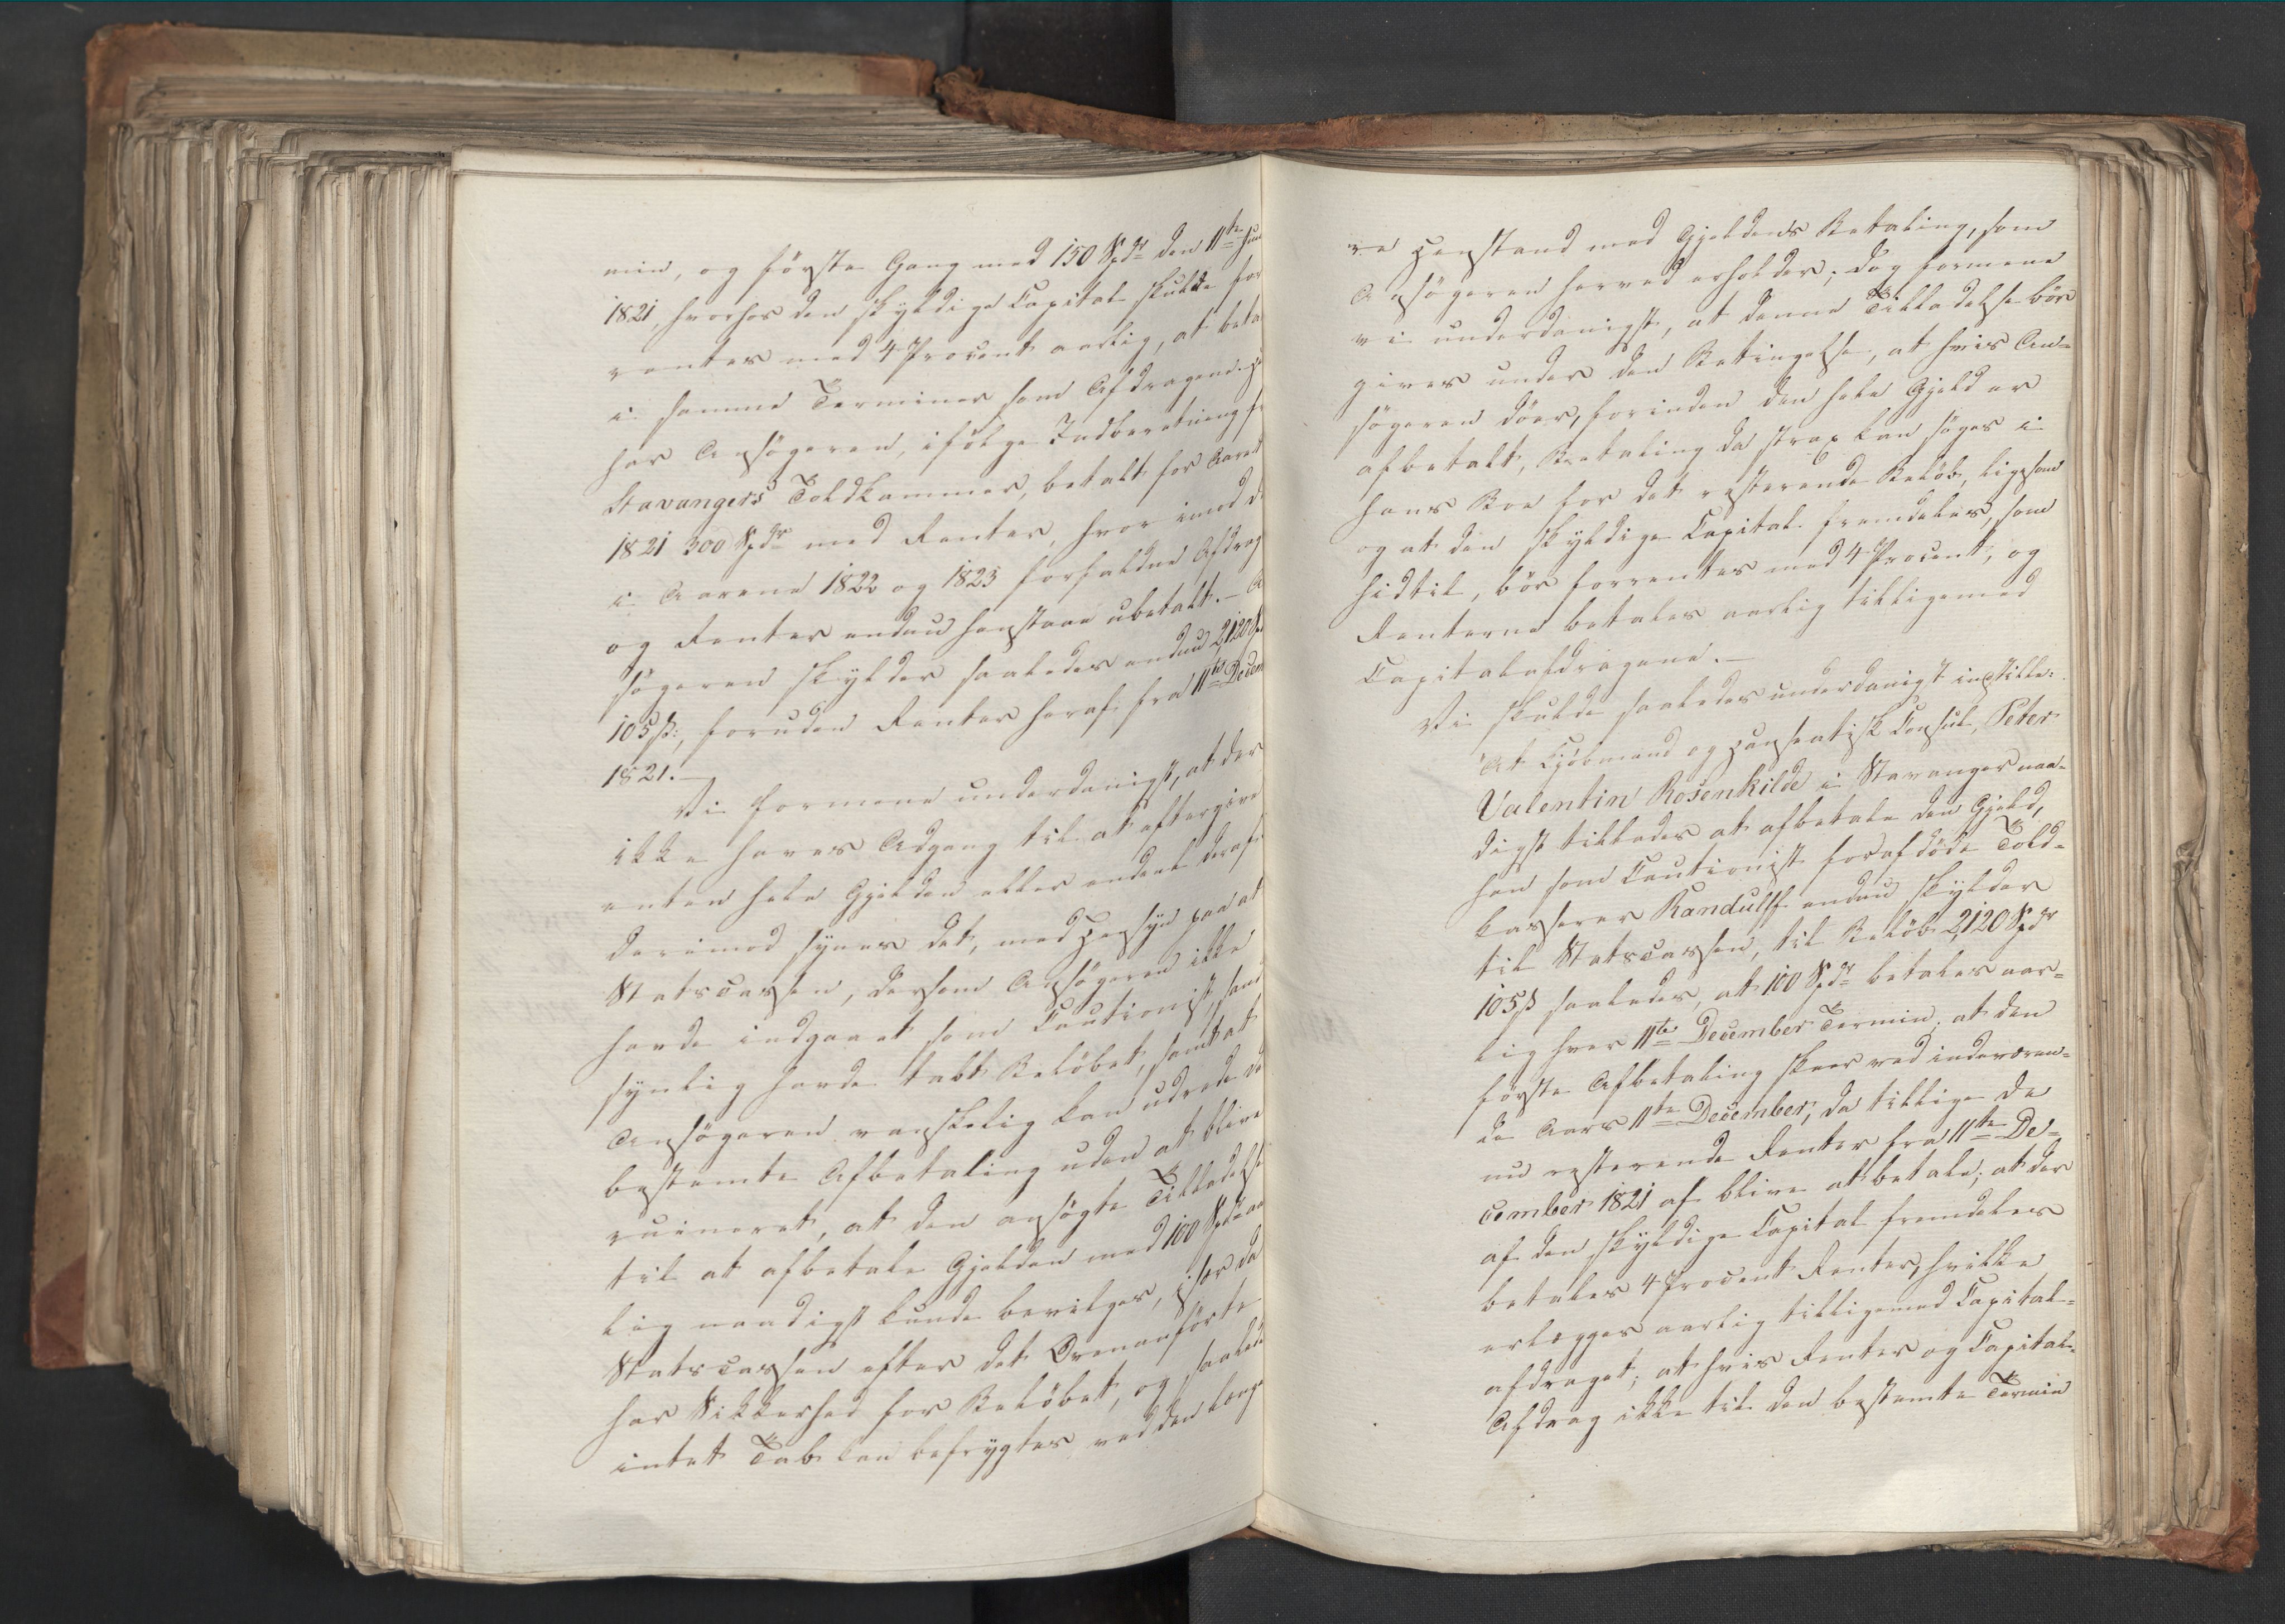 min, og første Gang med 150 Spdr den 11te Jun
1821, hvorhos den skyldige Capital skulde for
rentes med 4 Procent aarlig, at beta
i samme Terminer som Afdragene.
har Ansøgeren, ifølge Indberetning fr
Stavangers Toldkammer, betalt for Aaret
1821 300 Spdr med Renter, hvor imod d
i Aarene 1822 og 1823 forfaldne Afdrag
og Renter endnu henstaae ubetalt. – A
søgeren skylder saaledes endnu 2,120 Sp
105 ß:, foruden Renter heraf fra 11te Decem
1821. –
Vi formene underdanigst, at der
ikke haves Adgang til at eftergive
enten hele Gjelden eller endeel deraf
derimod synes det, med Hensyn paa at
Statscassen, dersom Ansøgeren ikke
havde indgaaet som Cautionist, sand
synlig havde tabt Beløbet, samt at
Ansøgeren vanskelig kan udrede de
bestemte Afbetaling uden at blive
ruineret, at den ansøgte Tilladelse
til at afbetale Gjelden med 100 Spdr aa
lig naadigst kunde bevilges, især da
Statscassen efter det Ovenanførte
har Sikkerhed for Beløbet, og saaled
intet Tab kan befrygtes ved den læng
re Henstand med Gjeldens Betaling, som
Ansøgeren herved erholder; dog formene
vi underdanigst, at denne Tilladelse bør
gives under den Betingelse, at hvis An-
søgeren døer, forinden den hele Gjeld er
afbetalt, Betaling da strax kan søges i
hans Boe for det resterende Beløb, ligesom
og at den skyldige Capital fremdeles, som
hidtil, bør forrentes med 4 Procent, og
Renterne betales aarlig tilligemed
Capitalafdragene. –
Vi skulde saaledes underdanigst indstille:
At Kjøbmand og hanseatisk Consul, Peter
Valentin Rosenkilde i Stavanger naa-
digst tillades at afbetale den Gjeld,
han som Cautionist for afdøde Told-
kasserer Randulff endnu skylder
til Statscassen, til Beløb 2,120 Spdr
105 ß saaledes, at 100 Spdr betales aar-
lig hver 11te December Termin; at den
første Afbetaling skeer ved indeværen-
de Aars 11te December, da tillige de
nu resterende Renter fra 11te De-
cember 1821 af blive at betale; at der
af den skyldige Capital fremdeles
betales 4 Procent Renter, hvilke
erlægges aarlig tilligemed Capital-
afdraget; at hvis Renter og Capital-
Afdrag ikke til den bestemte Termin